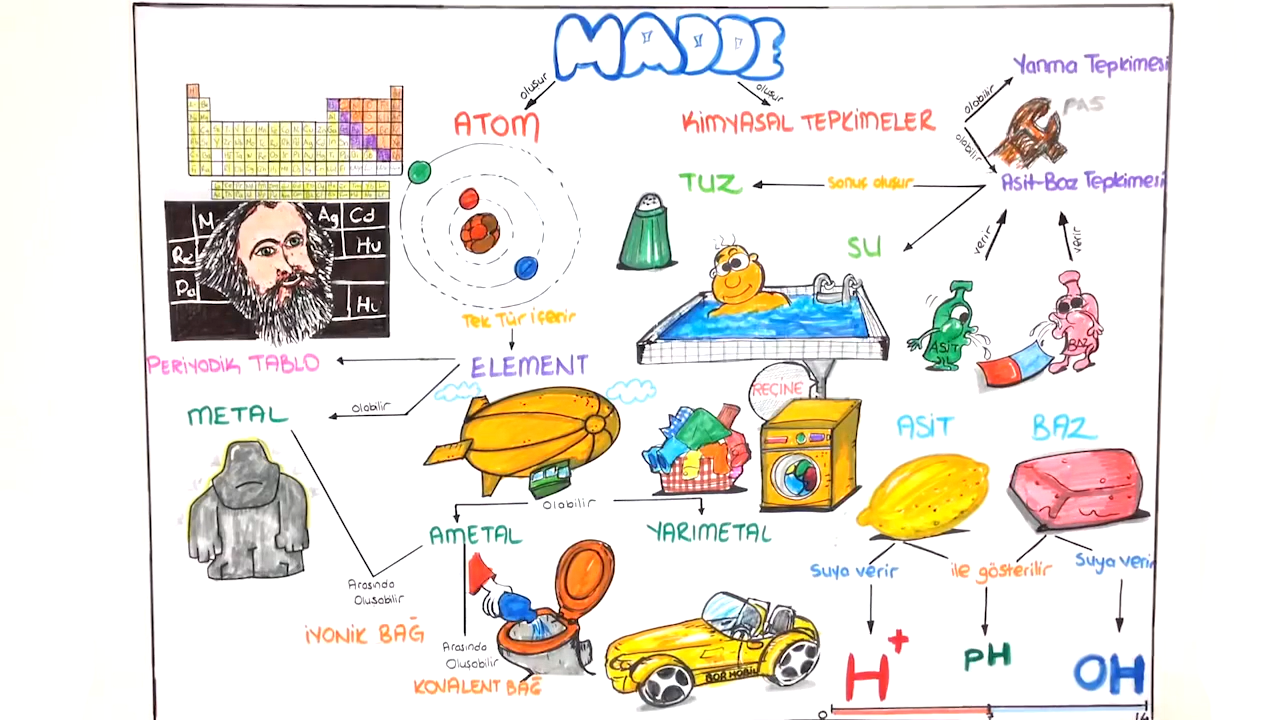 MADDE
oluşur
oluşur
ATOM
KİMYASAL TEPKİMELER
olabilir
Yanma Tepkimesi
PAS
olabilir
Asit-Baz Tepkimesi
TUZ
sonuç oluşur
SU
verir
verir
M
Ag
Cd
Hu
Hi
Tek Tür İçerir
ASİT
BAZ
PERİYODİK TABLO
ELEMENT
olabilir
METAL
REÇİNE
ASİT
BAZ
olabilir
AMETAL
YARIMETAL
Arasında
Oluşabilir
İYONİK BAĞ
Arasında
Oluşabilir
KOVALENT BAĞ
BOR MOBİL
Suya verir
ile gösterilir
Suya verir
H+
pH
OH
0
14